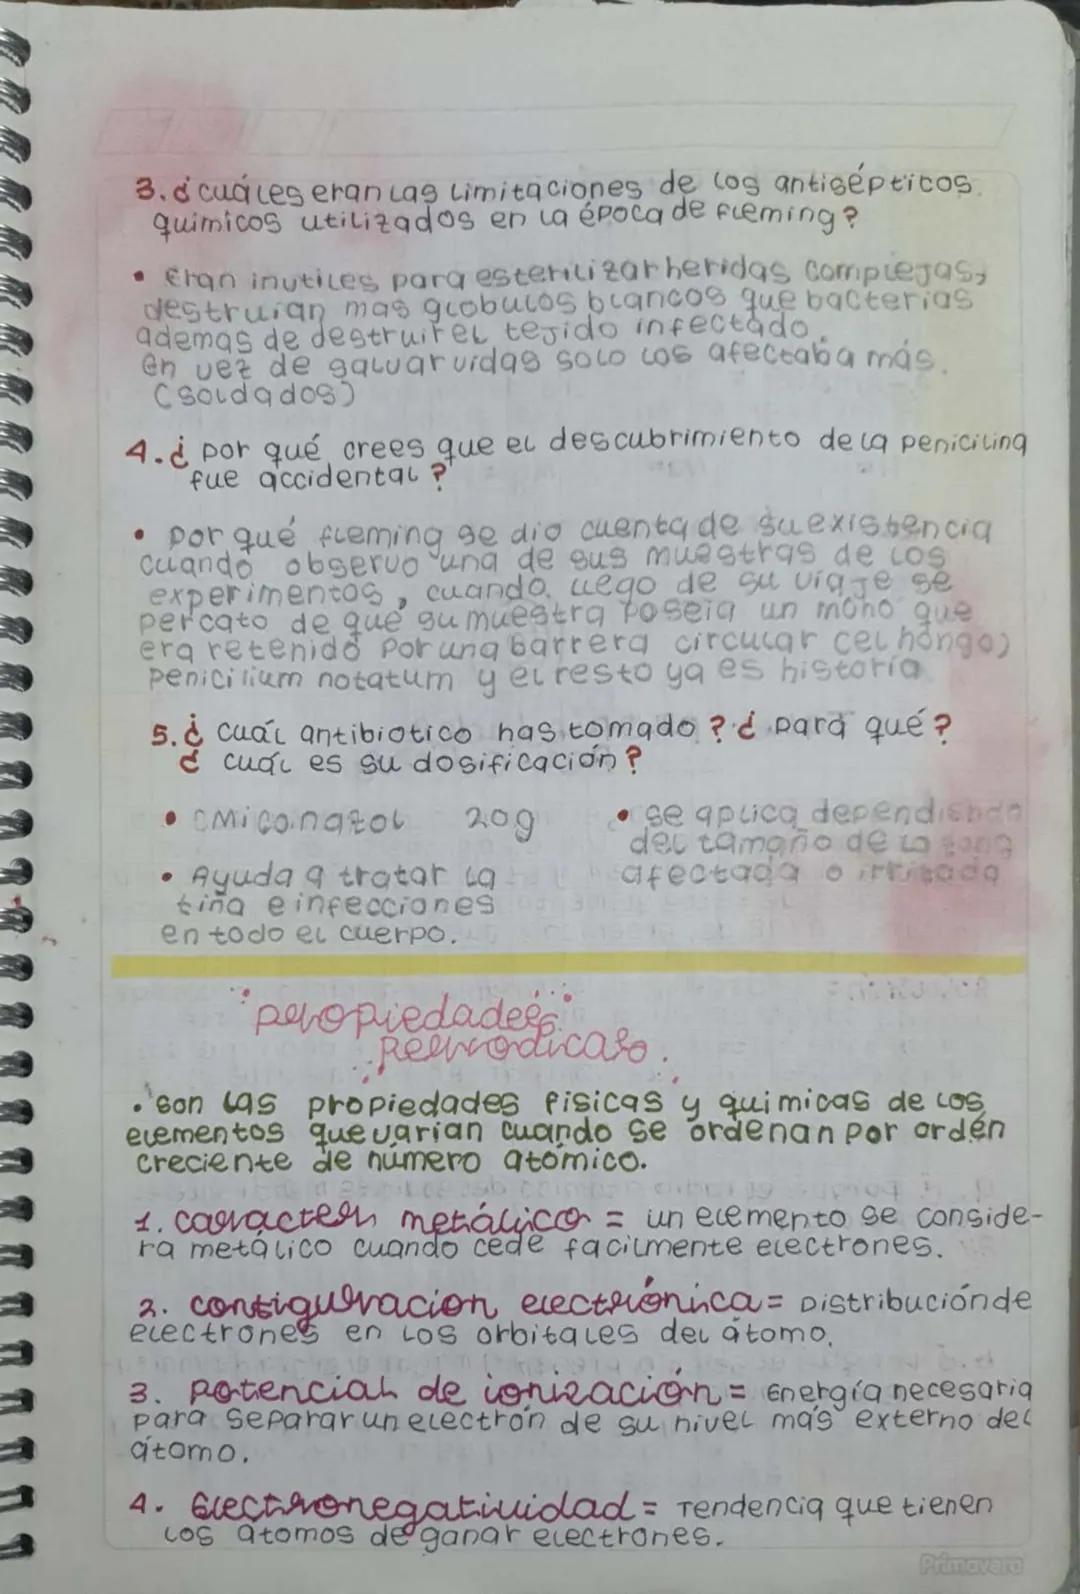 3. ¿cuáles eran las limitaciones de los antisépticos
quimicos utilizados en la época de fleming?
• Eran inutiles para esterilizar heridas complejas,
destruian mas globulos blancos que bacterias
ademas de destruir el tejido infectado.
En vez de salvar vidas solo los afectaba más.
(soldados)
4. ¿por qué crees que el descubrimiento de la penicilina
fue accidental?
• por qué fleming se dio cuenta de su existencia
cuando observo una de sus muestras de los
experimentos, cuando luego de su viaje se
percato de que su muestra poseia un moho que
era retenido por una barrera circular (el hongo)
penicilium notatum y el resto ya es historia
5. ¿cuál antibiotico has tomado? ¿para qué?
¿cuál es su dosificación?
• 20g
• Ayuda a tratar la
tiña e infecciones
en todo el cuerpo.
• se aplica dependiendo
del tamaño de la zona
afectada o irritada
propiedades
periodicas.
• son las propiedades fisicas y quimicas de los
elementos que varian cuando se ordenan por ordén
creciente de número atómico.
1. caracter metálico = un elemento se conside-
ra metálico cuando cede facilmente electrones.
2. configuracion electrónica = Distribución de
electrones en los orbitales del átomo.
3. potencial de ionización = Energía necesaria
para separar un electrón de su nivel más externo del
átomo.
4. Electronegatividad = Tendencia que tienen
los átomos de ganar electrones.
Primavera